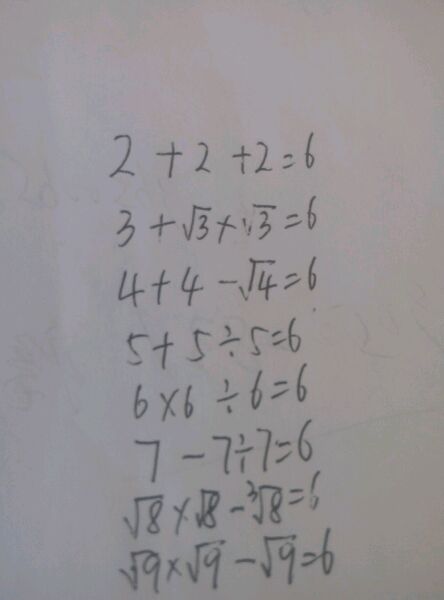 2 + 2 + 2 = 6
3 + √3 × √3 = 6
4 + 4 - √4 = 6
5 + 5 ÷ 5 = 6
6 × 6 ÷ 6 = 6
7 - 7 ÷ 7 = 6
√8 × √8 - ³√8 = 6
√9 × √9 - √9 = 6